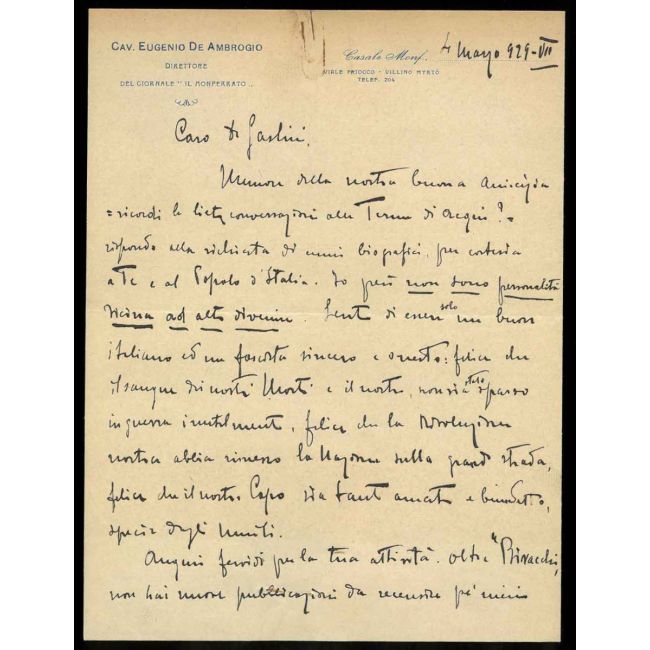 CAV. EUGENIO DE AMBROGIO
DIRETTORE
DEL GIORNALE "IL MONFERRATO"
Casale Monf. 4 Marzo 929-VII
VIALE PRIOCCO - VILLINO MYRTÒ
TELEF. 204
Caro De Gaslini,
Memore della nostra buona amicizia
= ricordi le liete conversazioni alle Terme di Acqui? =
rispondo alla richiesta di cenni biografici, per cortesia
a Te e al Popolo d'Italia. Io però non sono personalità
vicina ad alto divenire. Sento di essere solo un buon
italiano ed un fascista sincero e onesto: felice che
il sangue dei nostri Morti e il nostro, non sia stato sparso
in guerra inutilmente, felice che la Rivoluzione
nostra abbia rimesso la Nazione sulla grande strada,
felice che il nostro Capo sia tanto amato e benedetto,
specie dagli umili.
Auguri fervidi per la tua attività. Oltre "Bivacchi,
non hai nuove pubblicazioni da recensire pei miei